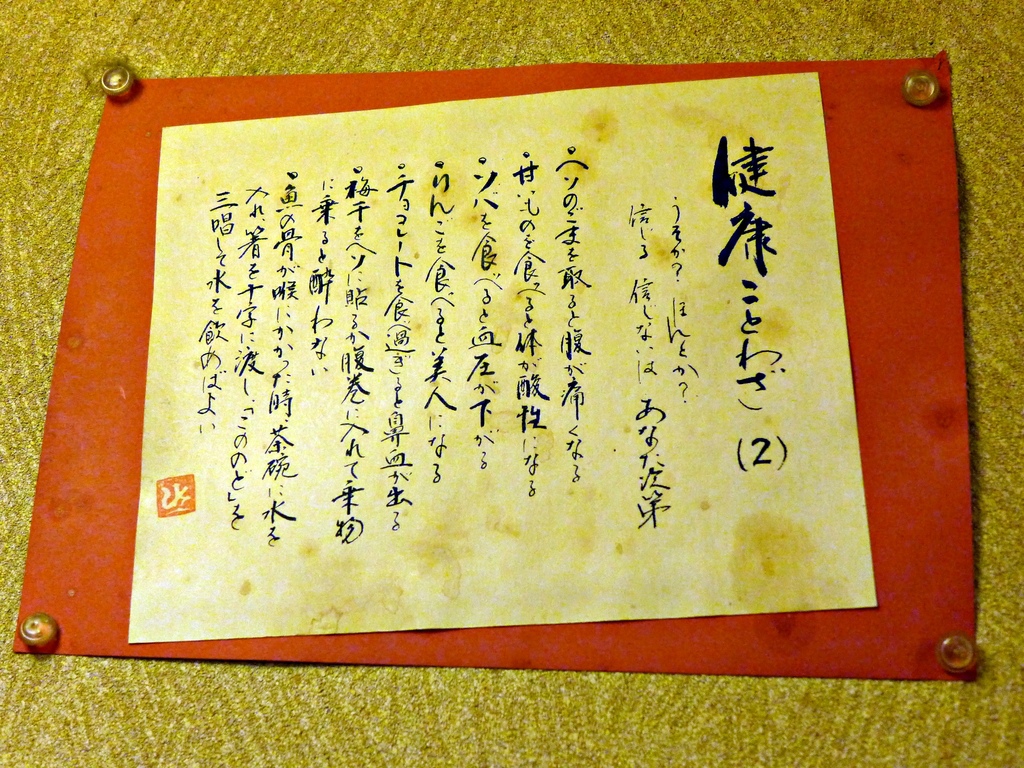 健康ことわざ(2)
うそか?ほんとか?
信じる 信じないは あなた次第
•ヘソのごまを取ると腹が痛くなる
•甘いものを食べると体が酸性になる
•ソバを食べると血圧が下がる
•りんごを食べると美人になる
•チョコレートを食べ過ぎると鼻血が出る
•梅干をヘソに貼るか腹巻に入れて乗物
に乗ると酔わない
•魚の骨が喉にかかった時、茶碗に水を
入れ箸を十字に渡し、「こののど」を
三唱して水を飲めばよい